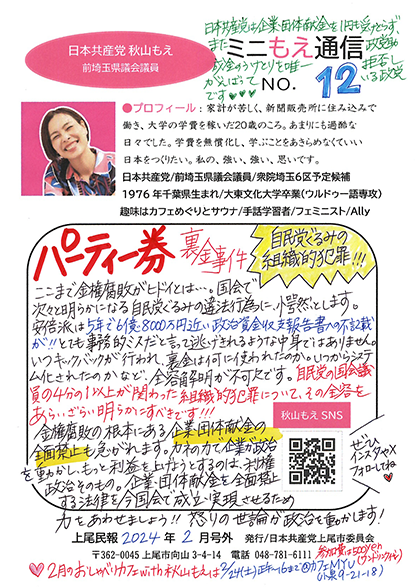 日本共産党は企業・団体献金を1円も受けとらず、
また政党助
成金のうけとりを唯一
拒否し
ている政党
です♥♥♥
日本共産党 秋山もえ
前埼玉県議会議員
ミニもえ通信
NO. 12
●プロフィール：家計が苦しく、新聞販売所に住み込みで
働き、大学の学費を稼いだ20歳のころ。あまりにも過酷な
日々でした。学費を無償化し、学ぶことをあきらめなくていい
日本をつくりたい。私の、強い、強い、思いです。
日本共産党/前埼玉県議会議員/衆院埼玉6区予定候補
1976年千葉県生まれ/大東文化大学卒業(ウルドゥー語専攻)
趣味はカフェめぐりとサウナ/手話学習者/フェミニスト/Ally
パーティー券
裏金事件
自民党ぐるみの
組織的犯罪!!!
ここまで金権腐敗がヒドイとは…。国会で
次々と明らかになる自民党ぐるみの違法行為に、愕然とします。
安倍派は5年で6億8000万円近い政治資金収支報告書への不記載
が!! とても事務的ミスだと言って逃げきれるような中身ではありません。
いつキックバックが行われ、裏金は何に使われたのか。いつからシステ
ム化されたのかなど、全容解明が不可欠です。自民党の国会議
員の4分の1以上が関わった組織的犯罪について、その全容を
あらいざらい明らかにすべきです!!!
金権腐敗の根本にある企業・団体献金の
全面禁止も急がれます。カネの力で企業が政治
を動かし、もっと利益を上げようとするのは、利権
政治そのもの。企業・団体献金を全面禁止
する法律を今国会で成立・実現させるため
力をあわせましょう!! 怒りの世論が政治を動かします!
秋山もえ SNS
ぜひ
インスタやX
フォローしてね
♥
上尾民報 2024年 2月号外 発行/日本共産党上尾市委員会
〒362-0045 上尾市向山3-4-14 電話 048-781-6111
♥2月のおしゃべりカフェwith秋山もえは2/24(土)正午〜16まで@カフェMYU
参加費は500yen
(1ドリンクつき)
(小泉9-21-18)